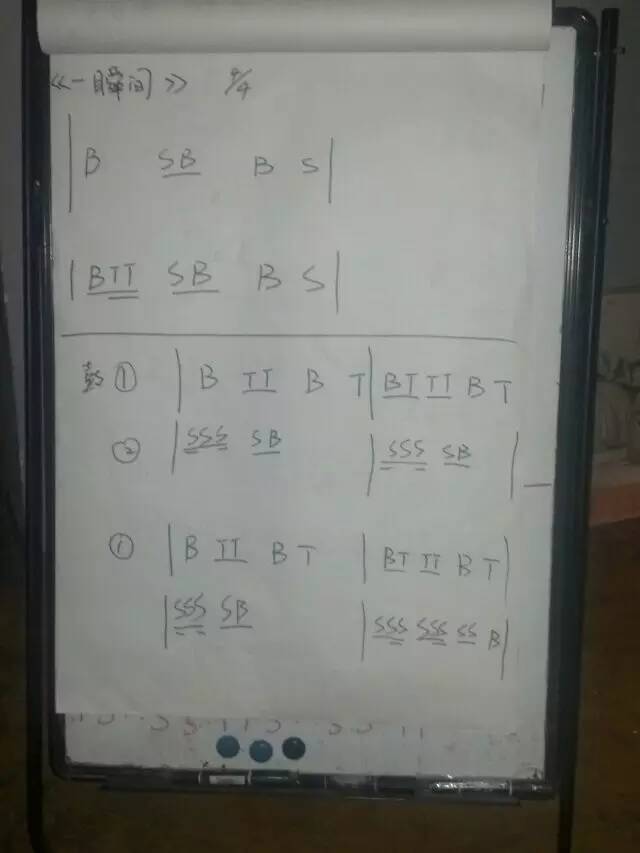 《一瞬间》 4/4
| B SB B S |
| BTT SB B S |
鼓① | B TT B T | BT TT B T
② | SSS SB | SSS SB |
① | B TT B T | BT TT B T |
| SSS SB | SSS SSS SS B |